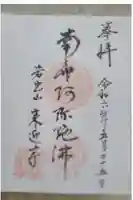 奉拝
令和六年五月二十五日
南無阿弥陀佛
来迎寺